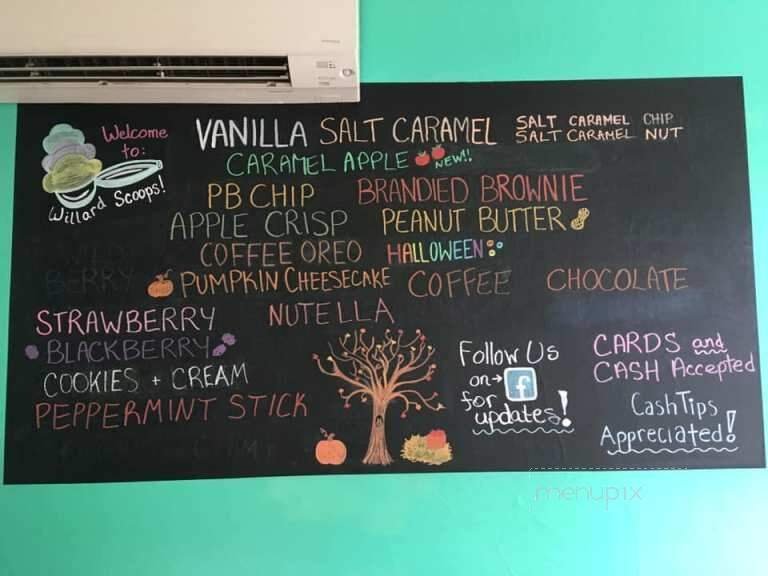 Welcome
to:
Willard Scoops!
VANILLA SALT CARAMEL SALT CARAMEL CHIP
SALT CARAMEL NUT
CARAMEL APPLE NEW!!
PB CHIP BRANDIED BROWNIE
APPLE CRISP PEANUT BUTTER
COFFEE OREO HALLOWEEN
BERRY PUMPKIN CHEESECAKE COFFEE CHOCOLATE
STRAWBERRY NUTELLA
BLACKBERRY
COOKIES + CREAM
PEPPERMINT STICK
Follow Us
on→ f
for
updates!
CARDS and
CASH Accepted
Cash Tips
Appreciated!
menupix